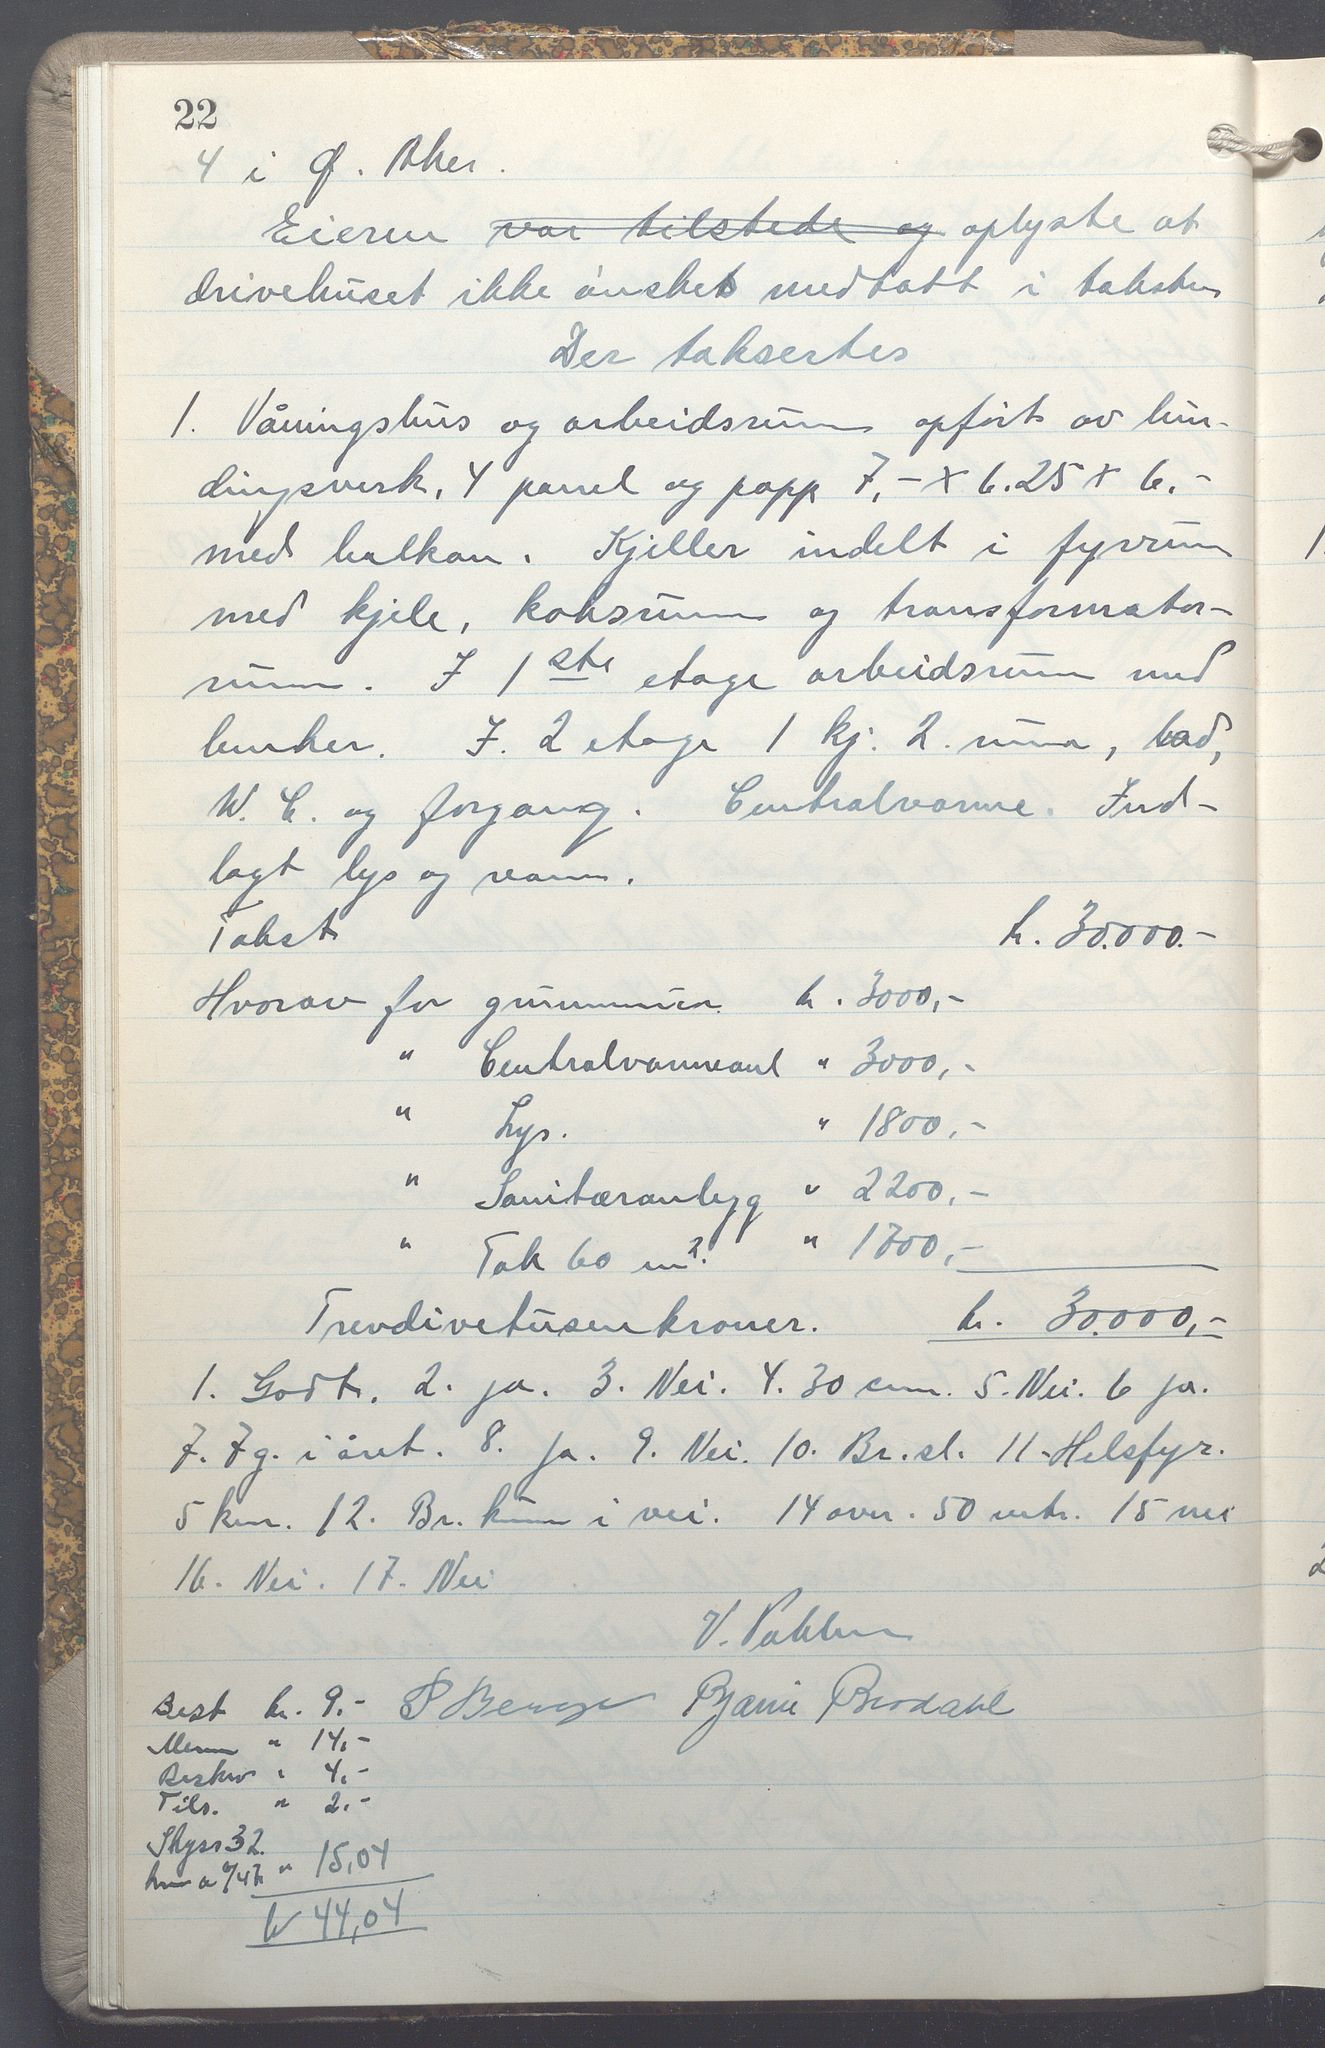 22
4 i Ø. Aker.
Eieren var tilstede og oplyste at
drivehuset ikke ønsket medtatt i taksten
Der taksertes
1. Våningshus og arbeidsrum opført av bin-
dingsverk, 4 panel og papp 7,- x 6.25 x 6,-
med balkon. Kjeller indelt i fyrrum
med kjele, koksrum og transformator-
rum. I 1ste etage arbeidsrum med
benker. I. 2 etage 1 kj. 2. rum, bad,
W. C. og forgang. Centralvarme. Ind-
lagt lys og vann.
Takst kr. 30.000.-
Hvorav for grunnmur kr. 3000,-
" Centralvarmeanl " 3000,-
" Lys. " 1800,-
" Sanitæranlegg " 2200,-
" Tak 60 m². " 1700,-
Trevdivetusenkroner. kr. 30.000,-
1. Godt. 2. ja. 3. Nei. 4. 30 cm. 5. Nei. 6 ja.
7. 7 g. i året. 8. Ja. 9. Nei. 10. Br.sl. 11. Helsfyr.
5 km. 12. Br. kum i vei. 14 over. 50 mtr. 15 nei
16. Nei. 17. Nei
V. Pahlen
Best kr. 9,- Bjarne Brodahl
" 14,-
Beskr " 4,-
Tils. " 2,-
Skyss 32.
km a 0/47 " 15,04
kr 44,04